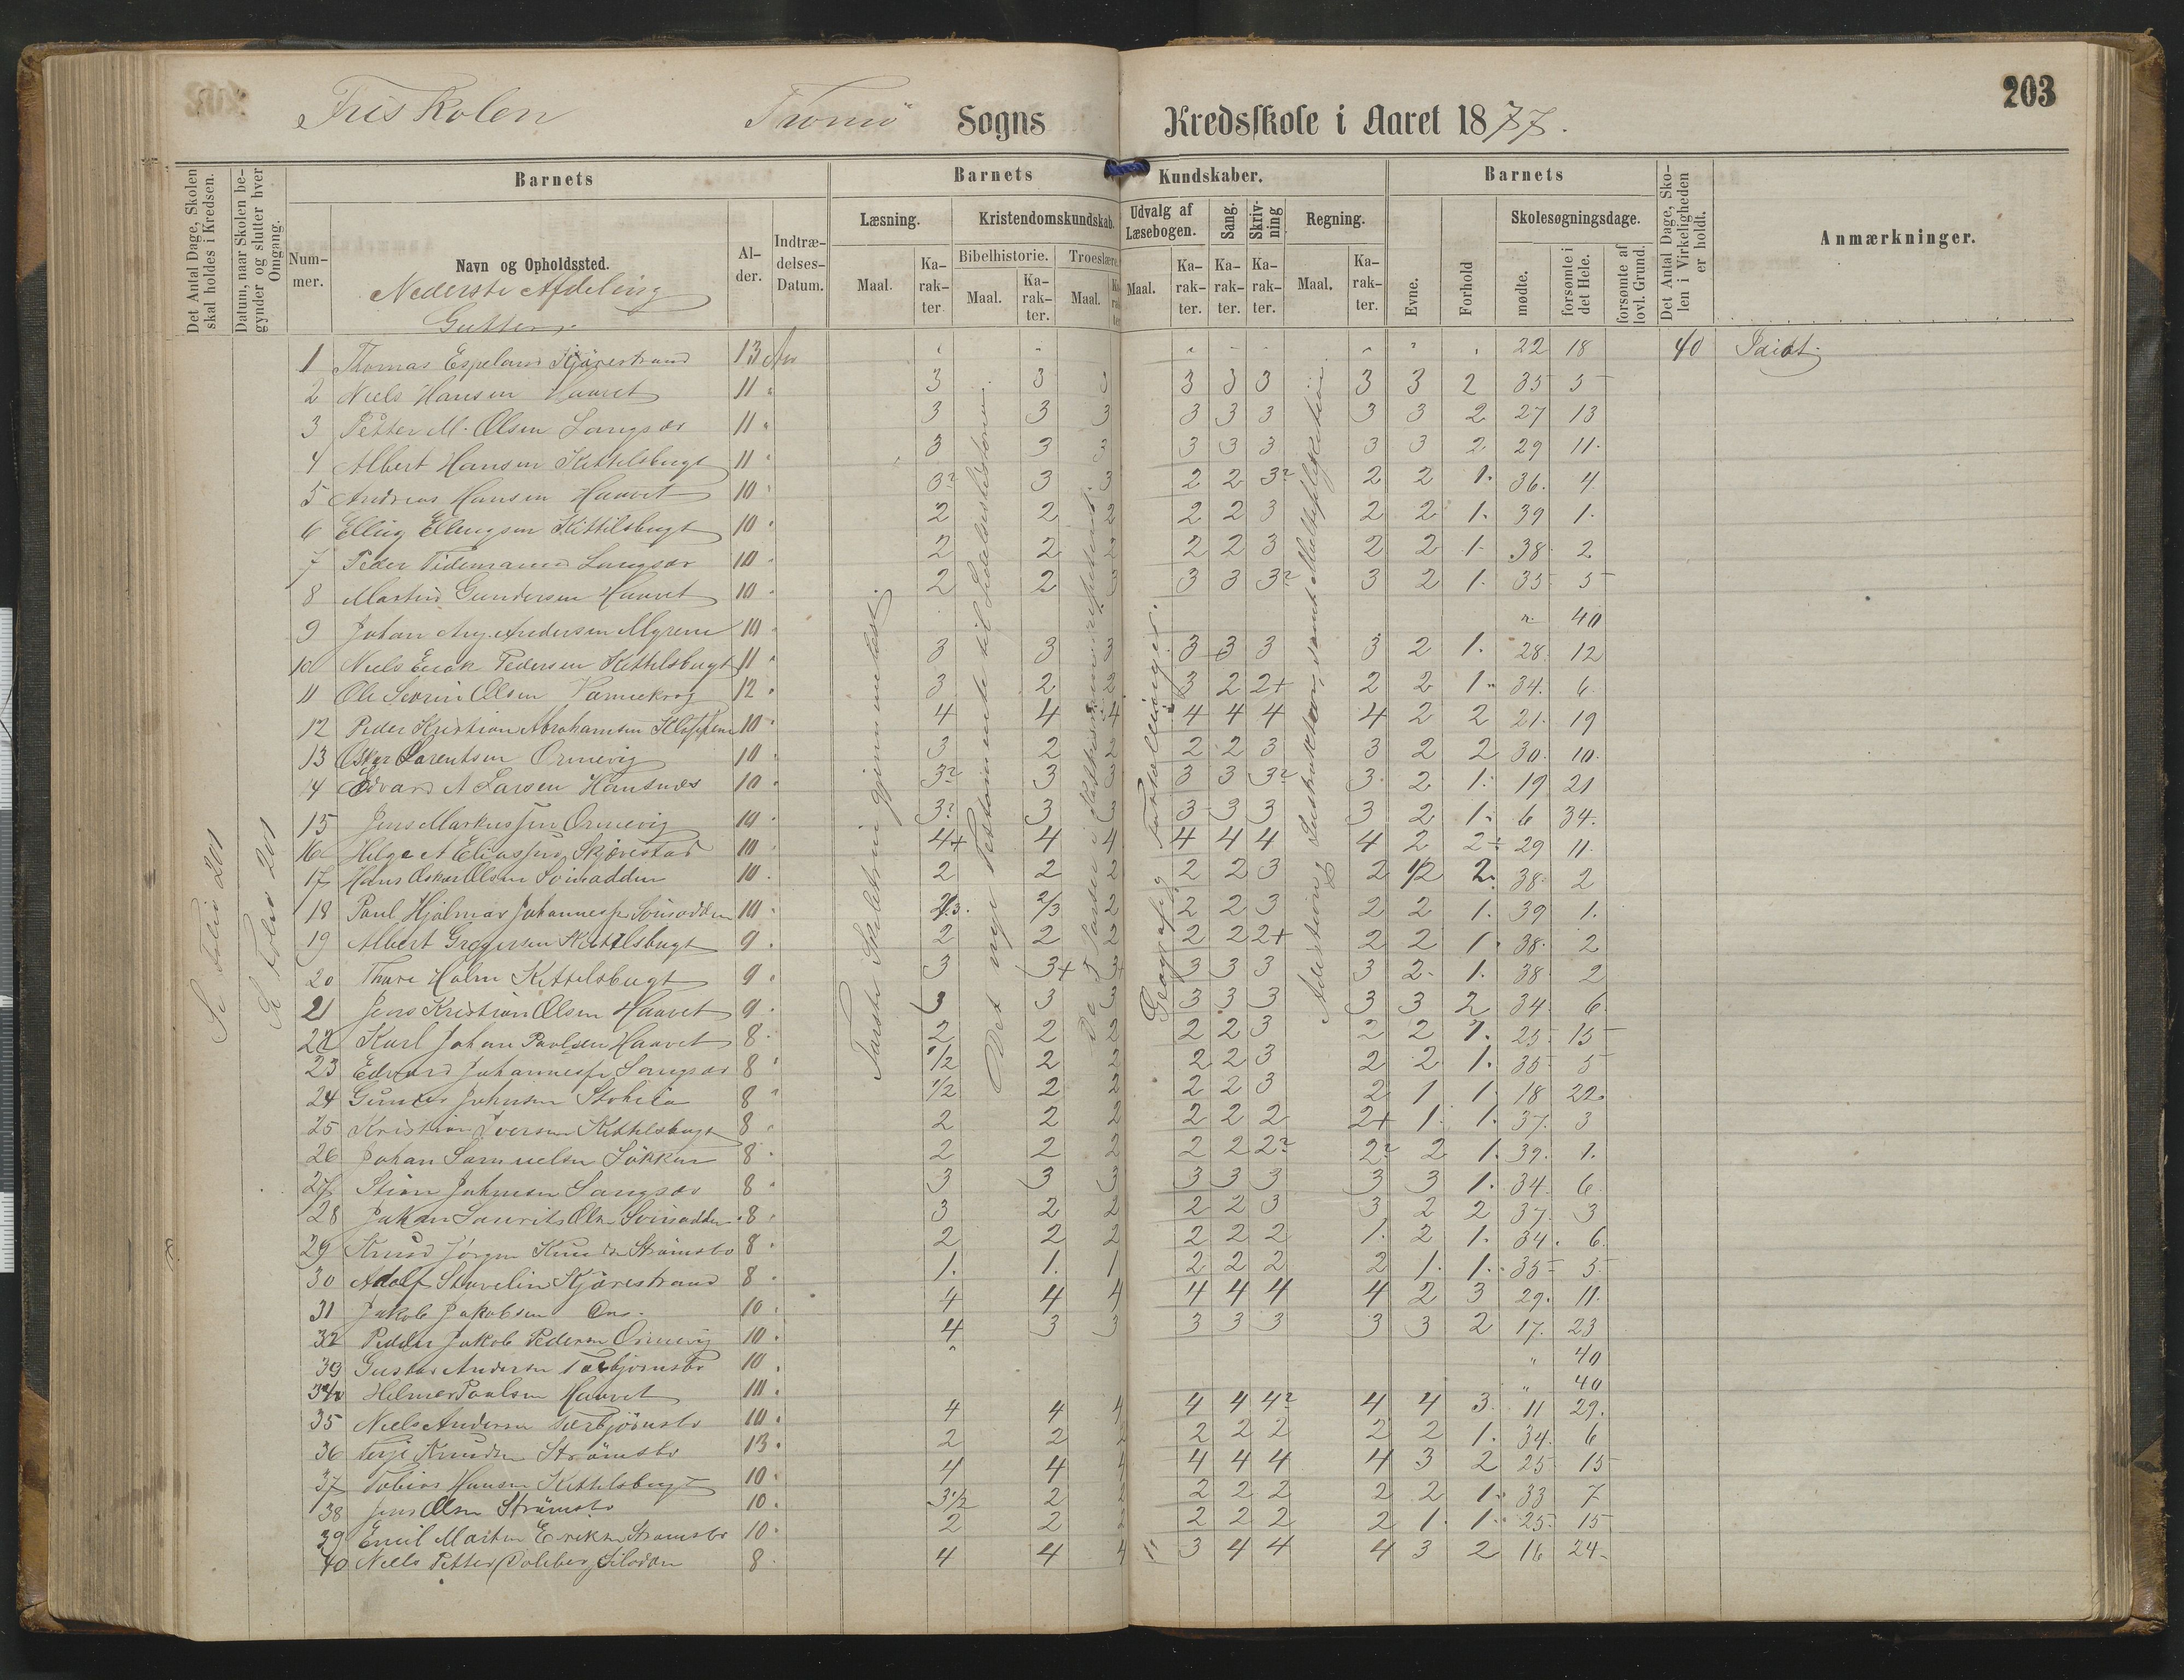 203
Friskolen Tromö Sogns Kredsskole i Aaret 1877.
Det Antal Dage, Skolen skal holdes i Kredsen.
Datum, naar Skolen begynder og slutter hver Omgang.
Barnets
Num-mer.
Navn og Opholdssted.
Nederste Afdeling
Gutter.
Al-der.
Indtræ-delses-Datum.
Barnets Kundskaber.
Læsning.
Maal.
Ka-rak-ter.
Kristendomskundskab.
Bibelhistorie.
Maal.
Ka-rak-ter.
Troeslære.
Maal.
Udvalg af Læsebogen.
Maal.
Ka-rak-ter.
Sang.
Ka-rak-ter.
Skriv-ning
Ka-rak-ter.
Regning.
Maal.
Ka-rak-ter.
Barnets
Evne.
Forhold
Skolesøgningsdage.
mødte.
forsømte i det Hele.
forsømte af lovl. Grund.
Det Antal Dage, Sko-len i Virkeligheden er holdt.
Anmærkninger.
Se Folio 201
Se Folio 201
Det nye Testamente til Lidelseshistorien.
Geografi Fortællinger.
1 Thomas Espeland Kjörestrand 13 22 18 40 Idiot.
2 Niels Hansen Haavet 11 3 3 3 3 3 3 3 3 2 35 5
3 Petter M. Olsen Langsæ 11 3 3 3 3 3 3 3 3 2 27 13
4 Albert Hansen Kittelsbugt 11 3 3 3 3 3 3 3 3 2 29 11.
5 Andreas Hansen Haavet 10 3? 3 3 2 2 3? 2 2 1. 36. 4
6 Elling Ellingsen Kittilsbugt 10 2 2 2 2 2 3 2 2 1. 39 1.
7 Peder Tidemand Langsæ 10 2 2 2 2 2 3 2 2 1. 38. 2
8 Martin Gundersen Haavet 10 2 2 3 3 3 3? 3 2 1. 35 5
9 Johan Aug. Andersen Myrene 10 " 40
10 Niels Enok Pedersen Kittelsbugt 11 3 3 3 3 3 3 3 2 1. 28. 12
11 Ole Severin Olsen 12 3 2 2 3 2 2+ 2 2 1. 34. 6
12 Peder Kristian Abrahamsen Kloppene 10 4 4 4 4 4 4 4 2 2 21. 19
13 Oskar Larentsen Ormevig 10 3 2 2 2 2 3 3 2 2 30. 10.
14 Edvard A Larsen Hansnæs 10 3? 3 3 3 3 3? 3 2 1. 19 21
15 Jens Markussen Ormevig 10 3? 3 3 3 3 3 3 2 1. 6 34.
16 Helge A Eliassen Skjævestad 10 4+ 4 4 4 4 4 4 2 2 29 11.
17 Hans Oskar Olsen Svinodden 10 2 2 2 2 2 3 2 1/2 2. 38. 2
18 Paul Hjalmar Johannessen Svinodden 10 2/3. 2/3 2 2 2 3 2 2 1. 39 1.
19 Albert Gregersen Kittilsbugt 9 2 2 2 2 2 2+ 2 2 1. 38. 2
20 Thore Holm Kittelsbugt 9 3 3+ 3+ 3 3 3 3 2 1. 38 2
21 Jens Kristian Olsen Haavet 9 3 3 3 3 3 3 3 3 2 34. 6
22 Karl Johan Paulsen Haavet 8 2 2 2 2 2 3 2 2 1. 25. 15
23 Edvard Johannessen Langsæ 8 1/2 2 2 2 2 3 2 2 1. 35 5
24 Gunder Johnsen 8 1/2 2 2 2 2 3 2 1 1. 18 22.
25 Kristian Iversen Kittelsbugt 8 2 2 2 2 2 2 2+ 1. 1. 37. 3
26 Johan Samuelsen Lökken 8 2 2 2 2 2 2? 2? 2 1. 39. 1.
27 Stian Johnsen Langsæ 8 3 3 3 3 3 3 3 3 1. 34. 6
28 Johan Laurits Olsen Svinodden 8 3 2 2 2 2 3 3 2 2 37. 3
29 Knud Jörgen Knudsen Strömsbo 8 2 2 2 2 2 2 1. 2 1. 34. 6.
30 Adolf Stavelin Kjörestrand 8 1. 1. 1 2 2 2 2 1. 1. 35 5.
31 Jakob Jakobsen 10 4 4 4 4 4 4 4 2 3 29. 11.
32 Peder Jakob Pedersen Ormevig 10 4 3 3 3 3 3 3 3 2 17. 23
33 Gustav Andersen Torbjörnsbo 10 " 40
34 Helmer Paulsen Haavet 10 " 40
35 Niels Andersen Torbjörnsbo 10 4 4 4 4 4 4? 4 4 3. 11 29.
36 Terje Knudsen Strömsbo 13 2 2 2 2 2 2 2 2 1. 34. 6
37 Tobias Hansen Kittelsbugt 10 4 4 4 4 4 4 4 3 2 25 15
38 Jens Olsen Strömsbo 10 3 1/2 2 2 2 2 2 2 2 1. 33 7
39 Emil Martin Eriksen Strömsbo 10 2 2 2 2 2 2 2 1. 1. 25. 15
40 Niels Petter 8 4 4 4 3 4 4 4 3 2 16 24.